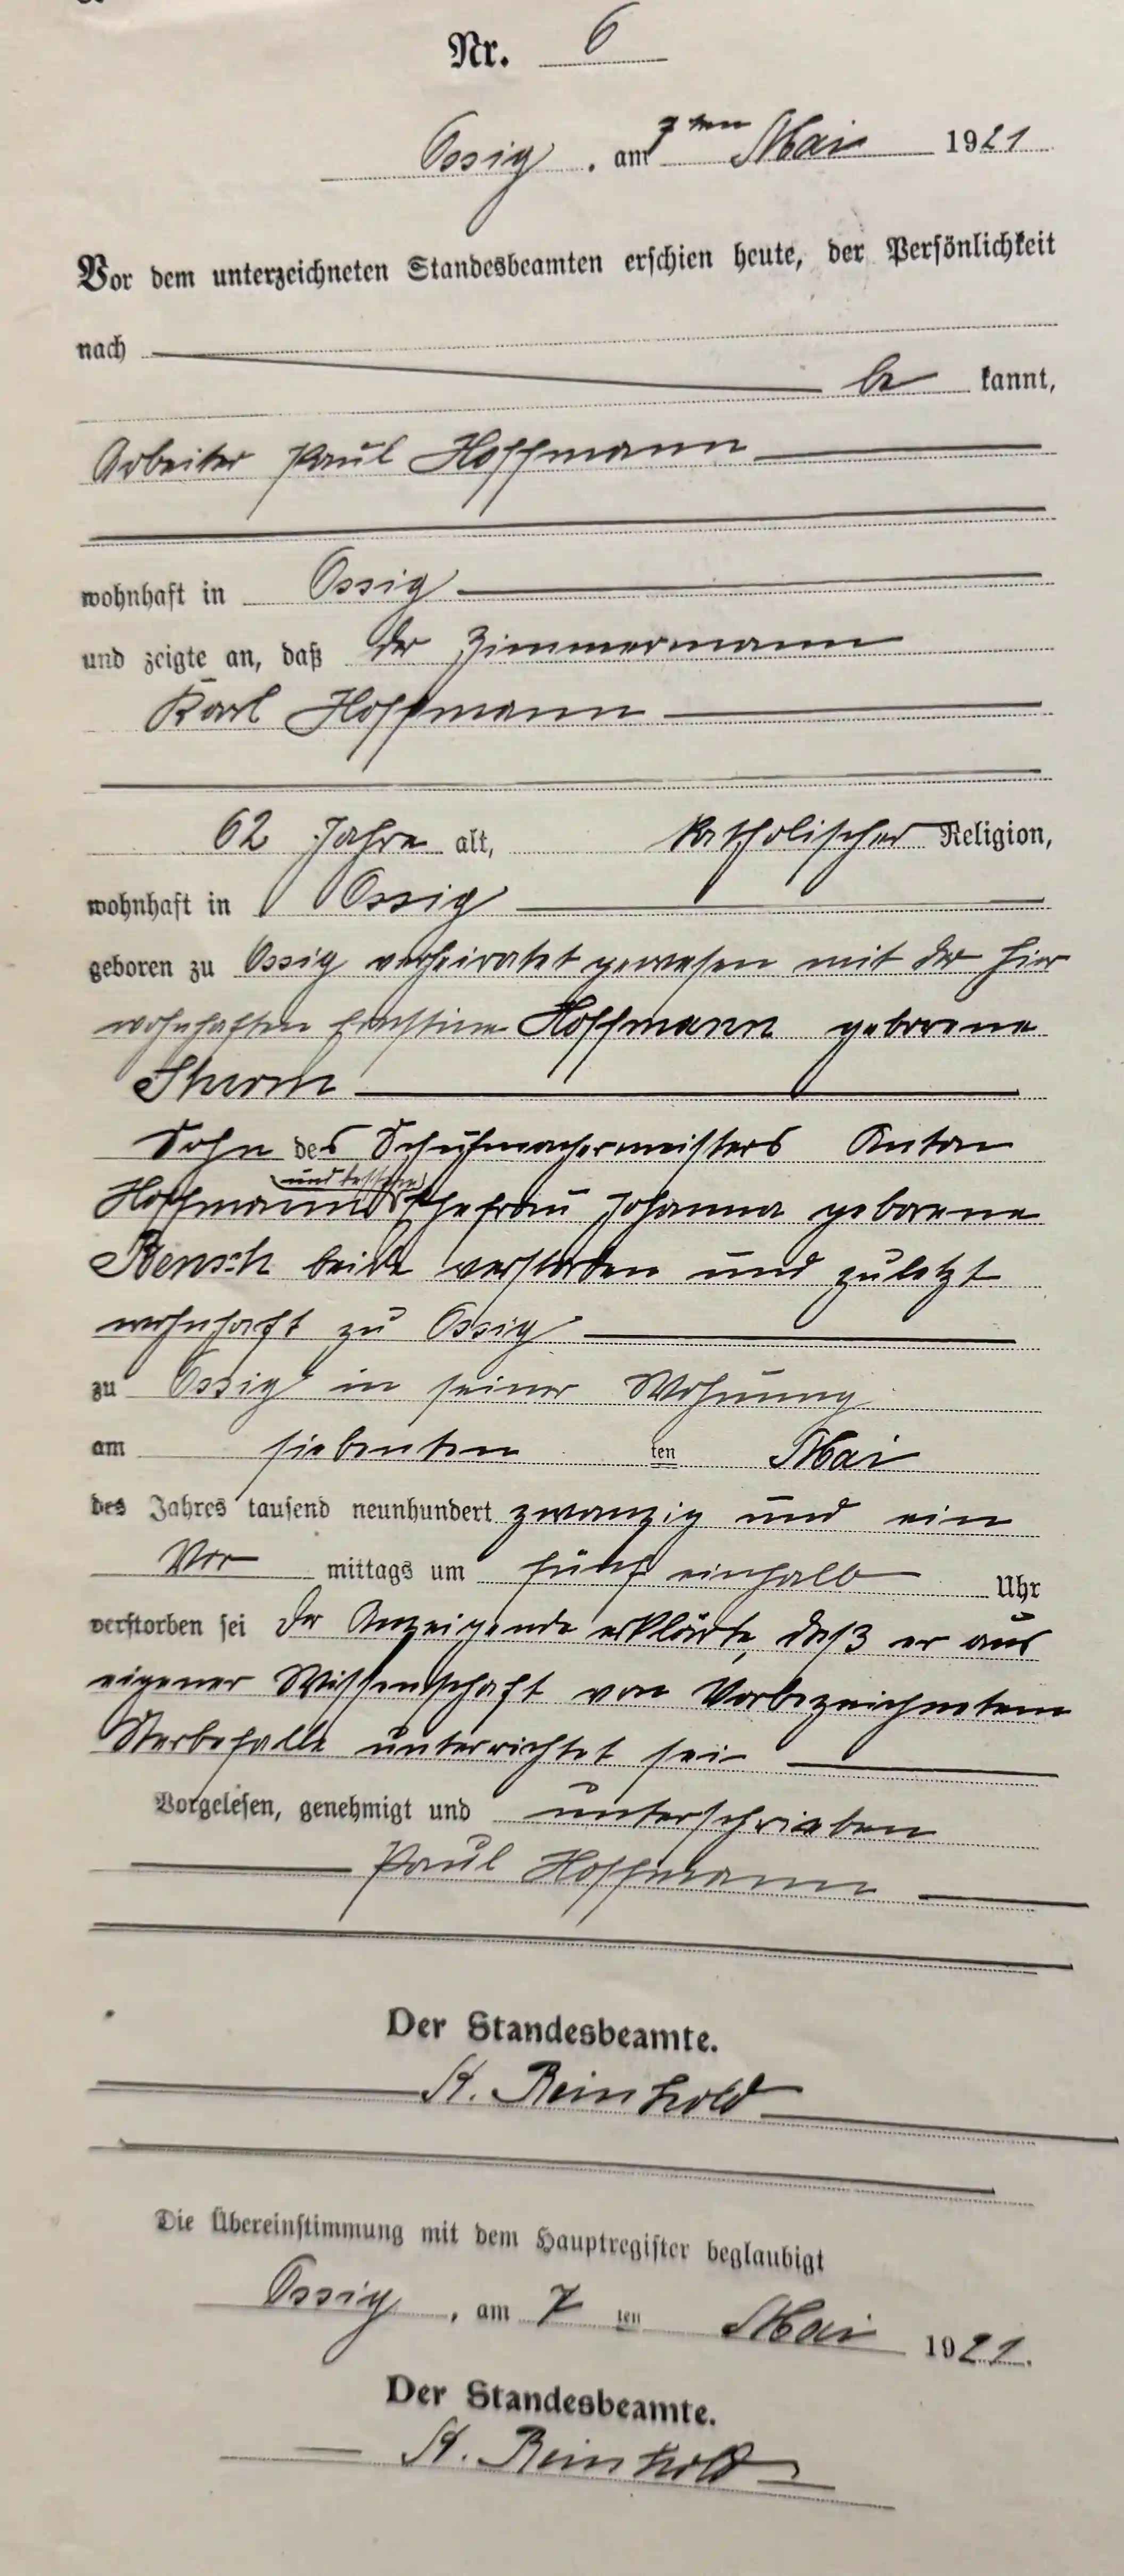 Nr. 6
Ossig, am 7ten Mai 1921
Vor dem unterzeichneten Standesbeamten erschien heute, der Persönlichkeit
nach
be kannt,
Arbeiter Paul Hoffmann
wohnhaft in Ossig
und zeigte an, daß der Zimmermann
Karl Hoffmann
62 Jahre alt, katholischer Religion,
wohnhaft in Ossig
geboren zu Ossig verheiratet gewesen mit der hier
wohnhaften Ernstine Hoffmann geborene
Sturm
Sohn des Schuhmachermeisters Anton
und dessen
Hoffmann Ehefrau Johanna geborene
beide verstorben und zuletzt
wohnhaft zu Ossig
zu Ossig in seiner Wohnung
am siebenten ten Mai
des Jahres tausend neunhundert zwanzig und ein
Vor mittags um fünf einhalb Uhr
verstorben sei Der Anzeigende erklärte, daß er aus
eigener Wissenschaft von Vorbezeichnetem
Sterbefalle unterrichtet sei
Vorgelesen, genehmigt und unterschrieben
Paul Hoffmann
Der Standesbeamte.
Reinhold
Die Übereinstimmung mit dem Hauptregister beglaubigt
Ossig, am 7 ten Mai 1921.
Der Standesbeamte.
Reinhold